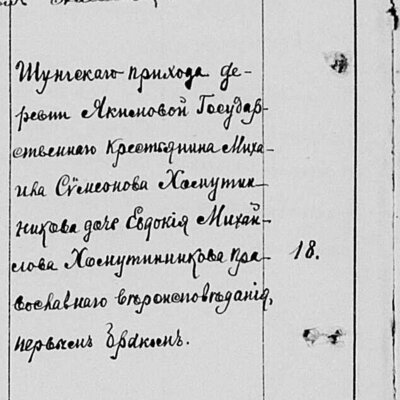 Шунгскаго прихода де-
ревни Якимовой Государ-
ственнаго крестьянина Миха-
ила Сѵмеонова Хомутин-
никова дочь Евдокія Михай-
лова Хомутинникова пра-
вославнаго вѣроисповѣданія,
первымъ бракомъ.
18.